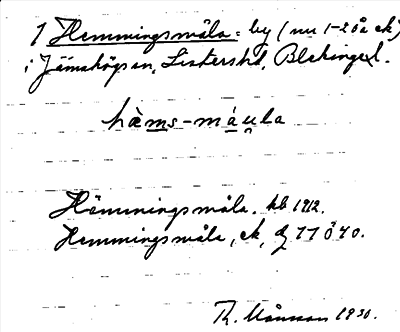 1 Hemmingsmåla: by (nu 1-2 öa ek)
i Jämshögs sn, Listers hd, Blekinge l.
hàms-máula
Hömmingsmåla. kb 1912.
Hemmingsmåla, ek,
Th. Månsson 1930.